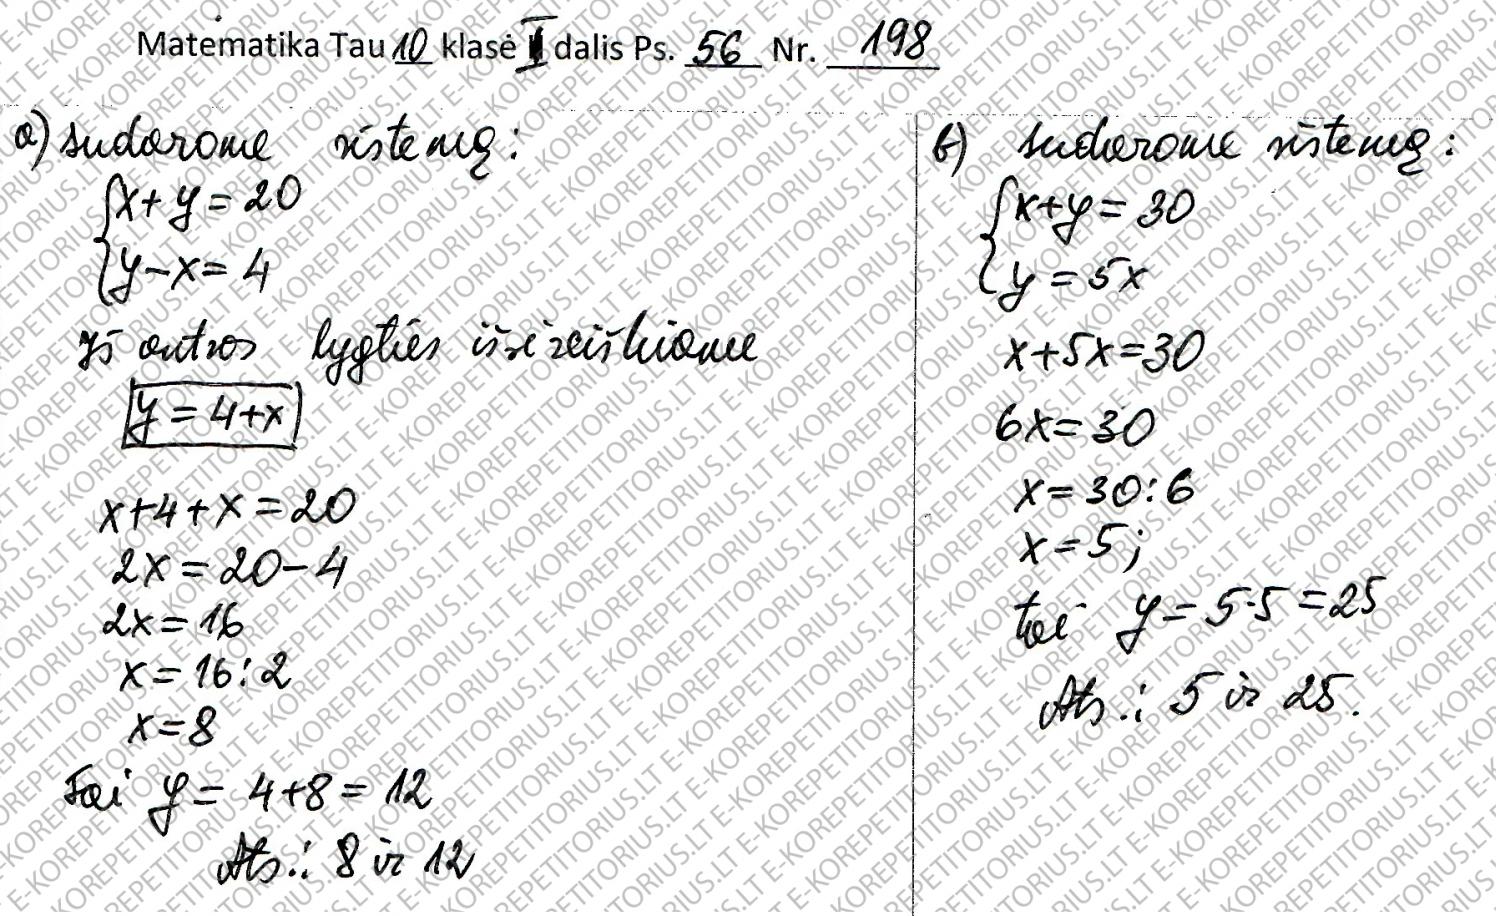 Matematika Tau 10 klasė I dalis Ps. 56 Nr. 198
a) sudarome sistemą:
x+y=20
y-x=4
Iš antros lygties išsireiškiame
y=4+x
x+4+x=20
2x=20-4
2x=16
x=16:2
x=8
Tai y=4+8=12
Ats.: 8 ir 12
b) sudarome sistemą:
x+y=30
y=5x
x+5x=30
6x=30
x=30:6
x=5;
tai y=5·5=25
Ats.: 5 ir 25.
E-KOREPETITORIUS.LT